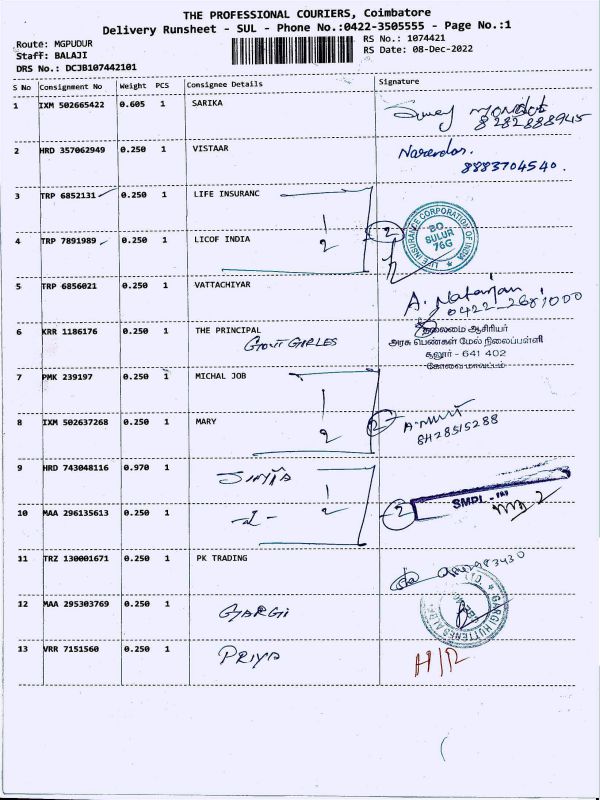 THE PROFESSIONAL COURIERS, Coimbatore
Delivery Runsheet - SUL - Phone No.:0422-3505555 - Page No.:1
Route: MGPUDUR
RS No.: 1074421
Staff: BALAJI
RS Date: 08-Dec-2022
DRS No.: DCJB107442101
S No Consignment No Weight PCS Consignee Details Signature
1 IXM 502665422 0.605 1 SARIKA
8282888945
2 HRD 357062949 0.250 1 VISTAAR Narendas.
8883704540.
3 TRP 6852131 0.250 1 LIFE INSURANC
1
2
2
LIFE INSURANCE CORPORATION OF INDIA
BO.
SULUR
76G
4 TRP 7891989 0.250 1 LICOF INDIA
5 TRP 6856021 0.250 1 VATTACHIYAR A. Natarjan
0422-2681000
6 KRR 1186176 0.250 1 THE PRINCIPAL
GOVT GIRLES
தலைமை ஆசிரியர்
அரசு பெண்கள் மேல் நிலைப்பள்ளி
சூலூர் - 641 402
கோவை மாவட்டம்
7 PMK 239197 0.250 1 MICHAL JOB
1
2
2
8 IXM 502637268 0.250 1 MARY
8428515288
9 HRD 743048116 0.970 1
1
2
2
SMPL
10 MAA 296135613 0.250 1 -2-
11 TRZ 130001671 0.250 1 PK TRADING
12 MAA 295303769 0.250 1 GARGI
GARGI HUTTENES ALBERTUS
13 VRR 7151560 0.250 1 PRIYA H/R